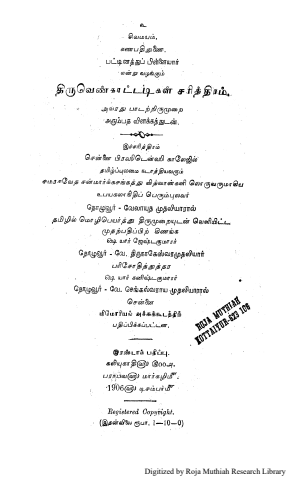 உ
சிவமயம்.
கணபதிதுணை.
பட்டினத்துப் பிள்ளையார்
என்று வழங்கும்
திருவெண்காட்டடிகள் சரித்திரம்.
அவரது பாடற்றிருமுறை
அரும்பத விளக்கத்துடன்.
இச்சரித்திரம்
சென்னை பிரஸிடென்ஸி காலேஜில்
தமிழ்ப்புலமை நடாத்தியவரும்
சமரசவேத சன்மார்க்கசங்கத்து வித்வான்களி லொருவருமாகிய
உபயகலாநிதிப் பெரும்புலவர்
தொழுவூர் - வேலாயுத முதலியாரால்
தமிழில் மொழிபெயர்த்து திருமுறையுடன் வெளியிட்ட
முதற்பதிப்பிற் கிணங்க
ஷெ யார் ஜேஷ்டகுமாரர்
தொழுவூர் - வே. திருநாகேஸ்வரமுதலியார்
பரிசோதித்துத்தர
ஷெ யார் கனிஷ்டகுமாரர்
தொழுவூர் - வே. செங்கல்வராய முதலியாரால்
சென்னை
மிமோரியல் அச்சுக்கூடத்திற்
பதிப்பிக்கப்பட்டன.
இரண்டாம் பதிப்பு.
கலியுகாதி
மார்கழிமீ
1906ளு டிசம்பர்மீ
Registered Copyright.
(இதன்விலை ரூபா. 1-10-0)
ROJA MUTHIAH
KOTTAIYUR-623 106
Digitized by Roja Muthiah Research Library